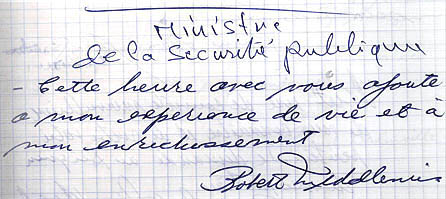 Ministre
de la Securité publique
- Cette heure avec vous ajoute
a mon experience de vie et à
mon enrichissement
Robert